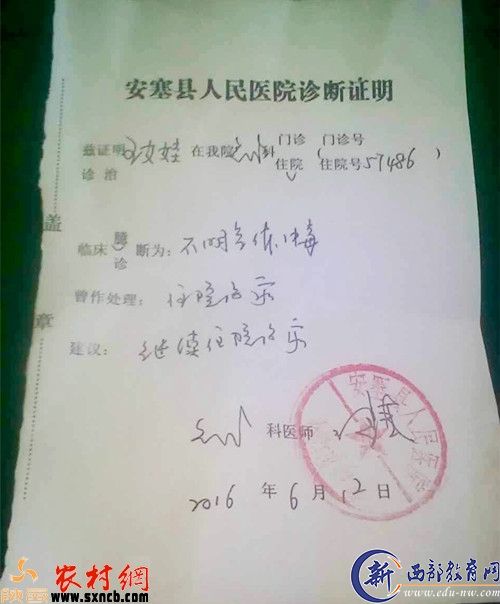 安塞县人民医院诊断证明
兹证明 在我院 科 门诊 门诊号
诊治 住院 住院号 57486
盖
章
临床 诊 断为：不明气体中毒
曾作处理：住院治疗
建议：继续住院治疗
科医师
安塞县人民医院
2016 年 6 月 12 日
农村網
www.sxncb.com
新 西部教育网
www.edu-nw.com